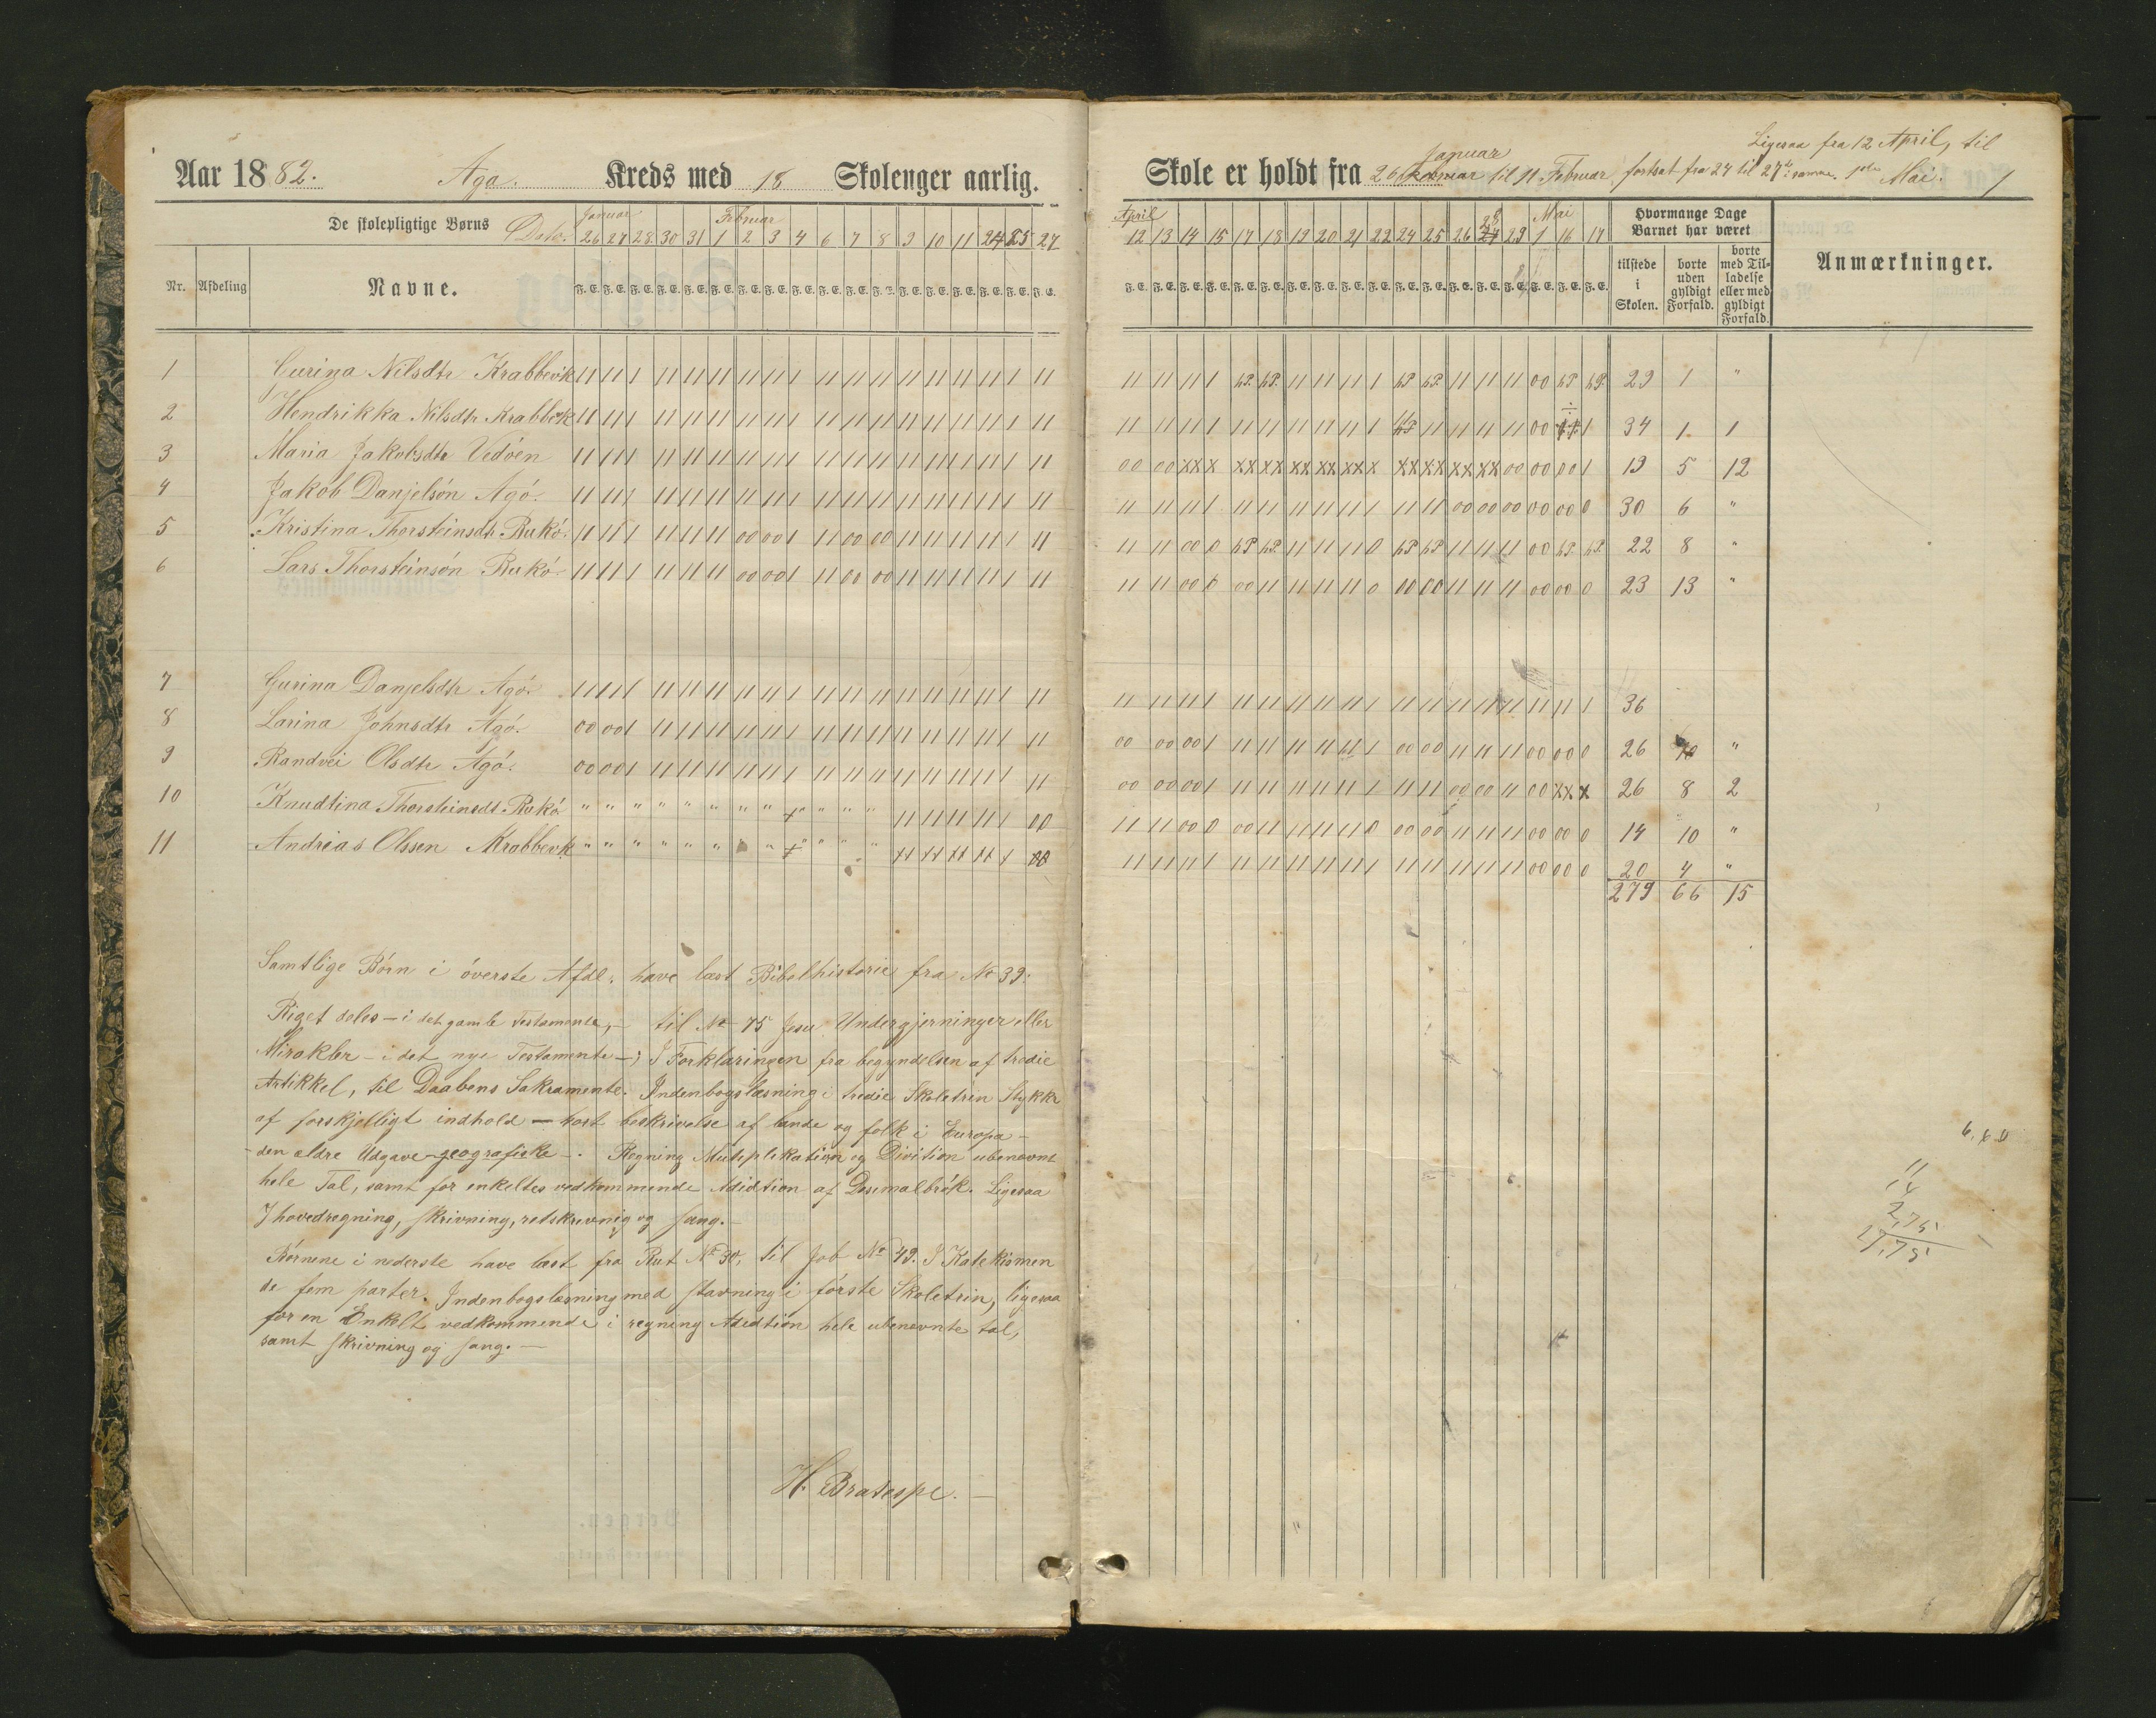 Aar 1882. Aga. Kreds med 18 Skolenger aarlig.
De skolepligtige Børns Dato. Januar Februar
26 27 28 30 31 1 2 3 4 6 7 8 9 10 11 24 25 27
Nr. Afdeling Navne. F. E. F. E. F. E. F. E. F. E. F. E. F. E. F. E. F. E. F. E. F. E. F. E. F. E. F. E. F. E. F. E. F. E. F. E.
1 Gurina Nilsdtr Krabbevik
2 Hendrikka Nilsdtr Krabbevk
3 Maria Jakobsdtr Vedöen
4 Jakob Danjelsön Agó.
5 Kristina Thorsteinsdt Rukó.
6 Lars Thorsteinsón Rukó
7 Gurina Danjelsdtr Agó.
8 Larina Johnsdtr Agó.
9 Randvei Olsdtr Agó.
10 Knudtina Thorsteinsdt. Rukó
11 Andreas Olssen Krabbevk
Samtlige Börn i överste Afdl. have læst Bibelhistorie fra No 39.
Riget deles – i det gamle Testamente, – til No 75 Jesu Undergjerninger eller
Mirakler – i det nye Testamente –; I Forklaringen fra begyndelsen af tredie
Artikkel, til Daabens Sakramente. Indenbogslæsning i tredie Skoletrin Stykkr
af forskjelligt indhold – kort beskrivelse af lande og folk i Europa –
– den ældre Udgave – geografiske –. Regning Multiplikation og Divition ubenevnt
hele Tal, samt for enkeltes vedkommende Adidtion af Desimalbrök. Ligesaa
I hovedregning, skrivning, retskrivnig og sang. –
Börnene i nederste have læst fra Rut No 30, til Job No 49. I Katekismen
de fem parter. Indenbogslæsning med stavning i förste Skoletrin, ligesaa
for en Enkelt vedkommende i regning Adidtion hele ubenevnte tal,
samt skrivning og sang. –
H. Bratespe. –
Ligesaa fra 12 April, til
Skole er holdt fra 26 Januar til 11 Februar, fortsat fra 24 til 27de samme. Mai. 1
April Mai Hvormange Dage Barnet har været
12 13 14 15 17 18 19 20 21 22 24 25 26 28 29 1 16 17
F. E. F. E. F. E. F. E. F. E. F. E. F. E. F. E. F. E. F. E. F. E. F. E. F. E. F. E. F. E. F. E. F. E. F. E.
tilstede i Skolen. borte uden gyldigt Forfald. borte med Tilladelse eller med gyldigt Forfald. Anmærkninger.
29 1 "
34 1 1
13 5 12
30 6 "
22 8 "
23 13 "
36
26 10 "
26 8 2
14 10 "
20 4 "
279 66 15
11
14
2,75
27,75